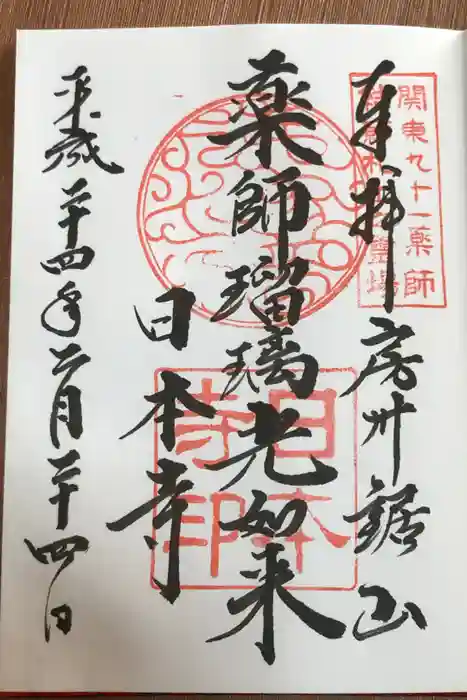 関東九十一薬師
奉拝 房州鋸山
薬師瑠璃光如来
日本寺
平成二十四年二月二十四日
日本
寺印